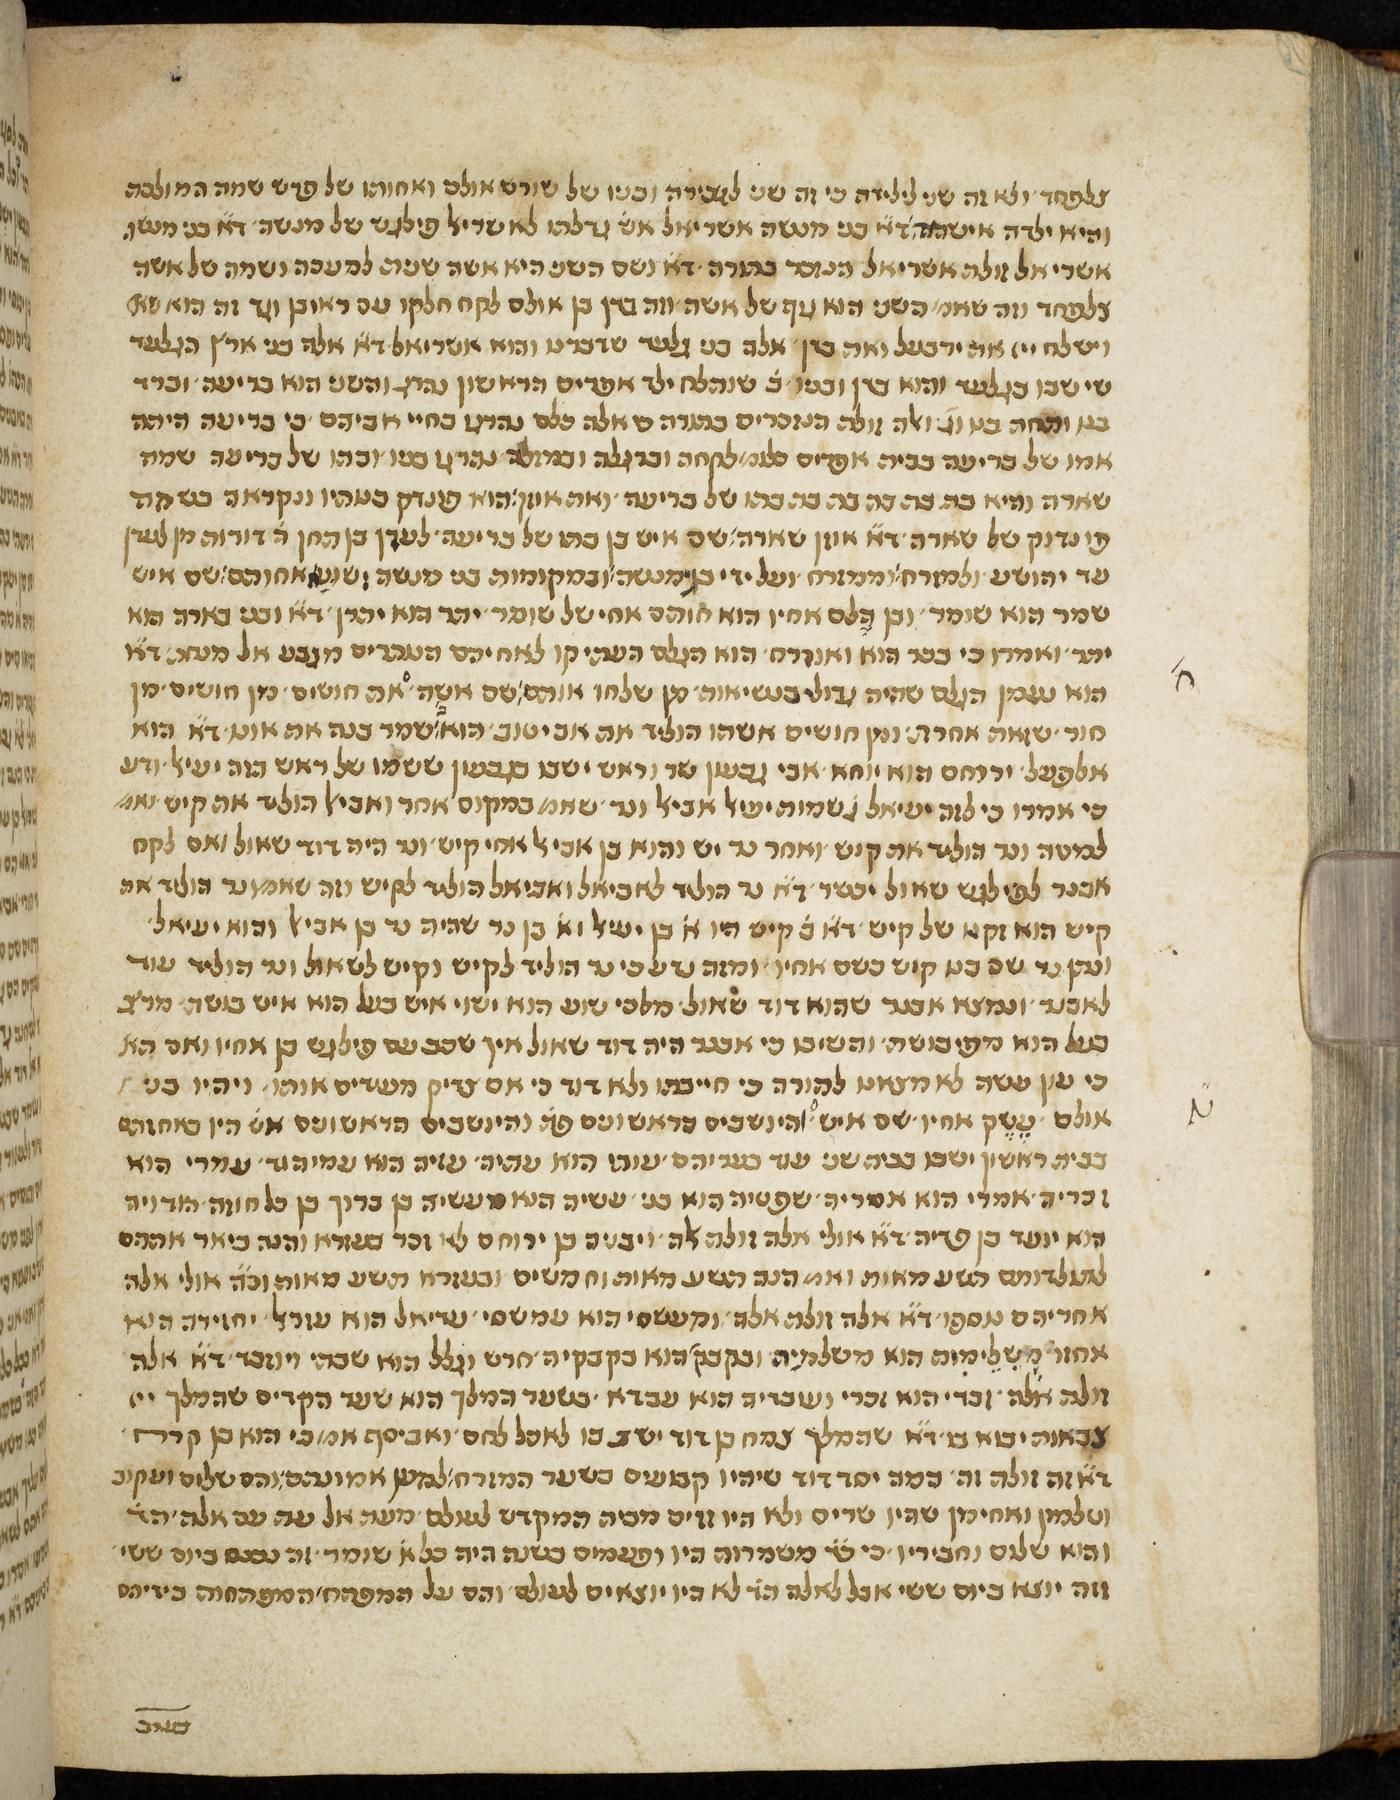 צלפחד ולא זה שני לילידה כי זה שני לגבירה ובניו של שורש אולם ואחותו של פרש שמה המולכה
והיא ילדה אישהוד ד״א בני מנשה אשריאל אש׳ גדלתו לאשריאל פילגש של מנשה ד״א בני מנשה
אשריאל זולת אשריאל הנזכר בתורה ד״א נשם השני היא אשה שנית למעכה ושמה של אשה
צלפחד וזה שאמ׳ השני הוא גוף של אשה וזה בדן בן אולם לקח חלקו עם ראובן וגד זה הוא שא׳
וישלח ייי את ירבעל ואת בדן אלה בני גלעד שדברנו והוא אשריאל ד״א אלה בני ארץ הגלעד
שישבו בגלעד והוא בדן ובניו ב׳ שותלח ילד אפרים הראשון נהרג והשני הוא בריעה וברד
בנו ותחת בנו וג׳ ואלה זולת הנזכרים בתורה ס׳ אלה כלם נהרגו בחיי אביהם כי בריעה היתה
אמו של בריעה בבית אפרים כלומ׳ לקחה וברגלה ובמזלה נהרגו בניו ובתו של בריעה שמה
שארה והיא בת בת בת בת בת בתו של בריעה ואת אוזן הוא פונדק בנותיו ונקראת בשמה
פונדוק של שארה ד״א אוזן שארה שם איש בן בתו של בריעה לעדן בן תחן ד׳ דורות מן לעדן
עד יהושע ולמזרח וממזרח ועל ידי בני מנשה ובמקומות בני מנשה ושוע אחותם שם איש
שמר הוא שומר ובן הלם אחיו הוא חותם אחי של שומר יתר הוא יתרן ד״א ובני בארה הוא
יתר ואמרו כי בכר הוא ואוזרח הוא הגלם העתיקו לאחיהם הנותרים מגבע אל מנחת ד״א
הוא נעמן הגלם שהיה גדול בנשיאות מן שלחו אותם שם אשה את חושים מן חושים מן
חור שזאת אחרת ומן חושים אשתו הוליד את אביטוב הוא שמר בנה את אונו ד״א הוא
אלפעל ירוחם הוא יוחא אבי גבעון שר וראש ישבו בגבעון ששמו של ראש הזה יעיאל ודע
כי אמרו כי לזה יעיאל ג׳ שמות יעיאל אביאל ונר שאמ׳ במקום אחר ואביאל הוליד את קיש ואמ׳
למטה ונר הוליד את קיש ואחר נר יש והוא בן אביאל אחי קיש ונר היה דוד שאול ואם לקח
אבנר לפילגש שאול יכשר ד״א נר הוליד לאביאל ואביאל הוליד לקיש וזה שאמ׳ ונר הוליד את
קיש הוא זקנו של קיש ד״א ב׳ קיש היו א׳ בן יעיאל וא׳ בן נר שהיה נר בן אביאל והוא יעיאל
ונתן נר שם בנו קיש כשם אחיו ומזה נדע כי נר הוליד לקיש וקיש לשאול ונר הוליד עוד
לאבנר ונמצא אבנר שהוא דוד שאול מלכי שוע הוא ישוי איש בעל הוא איש בושת מריב
בעל הוא מפיבושת והשיבו כי אבנר היה דוד שאול איך שכב עם פילגש בן אחיו ואם הא׳
כי עון עשה לא מצאנו לתורה כי חייבתו ולא דוד כי אם צדיק מעדים אותו ויהיו בני
אולם עשק אחיו שם איש והיושבים בראשונים פה והיושבים הראשונים אש׳ היו באחוזתם
בבית ראשון ישבו בבית שני עוד בעריהם עותי הוא עתיה עזיה הוא עמיהוד עמרי הוא
זכריה אמרי הוא אמריה שפטיה הוא בני עשיה הוא מעשיה בן ברוך בן כל חוזה הודויה
הוא יועד בן פדיה ד״א אולי אלה זולת אלה ויבניה בן ירוחם לא זכר בעזרא והנה ביאר אחיהם
לתולדותם תשע מאות ואמ׳ הנה תשע מאות וחמשים ובעזרא תשע מאות וכ״ח אולי אלה
אחריהם נוספו ד״א אלה זולת אלה ומעשי הוא עמשסי עדיאל הוא עזראל יחזירה הוא
אחזי משלימות הוא משלמיה ובקבקר הוא בקבקיה חרש וגלל הוא שבתי ויוזבד ד״א אלה
זולת אלה זכרי הוא זכרי ועובדיה הוא עבדא בשער המלך הוא שער הקדים שהמלך ייי
צבאות יבוא בו ד״א שהמלך צמח בן דוד ישב בו לאכל לחם ואביסף אמ׳ כי הוא בן קרח
ד״א זה זולת זה כמה יסד דוד שיהיו קבועים בשער המזרח למען אמונתם והם שלום ועקוב
וטלמון ואחימן שהיו שרים ולא היו זזים מבית המקדש לעולם מעת אל עת עם אלה הד׳
והוא שלום וחביריו כי כ״ד משמרות היו ופעמים בשנה היה כל א׳ שומר זה נכנס ביום ששי
וזה יוצא ביום ששי אבל לאלה הד׳ לא היו יוצאים לעולם והם על המפתח המפתחות בידיהם